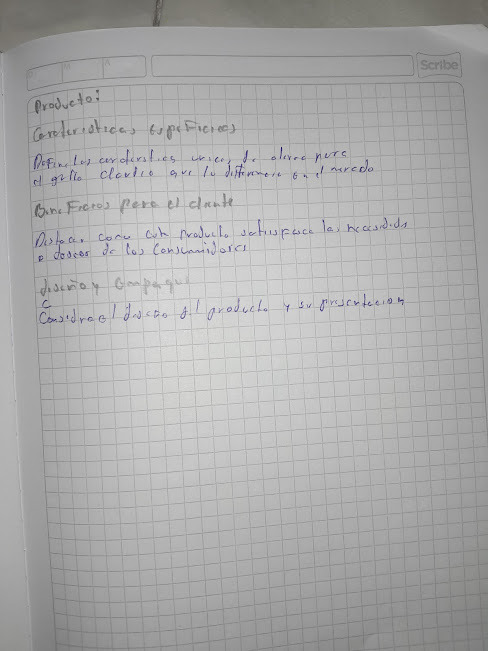 Scribe
Producto:
Caracteristicas Especificas
Define las caracteristicas unicas de
el gallo Claudio que lo diferencia en el mercado
Beneficios para el cliente
Destacar como este producto satisface las necesidades
o deseos de los Consumidores
diseño y Empaque
C
Considera el diseño del producto y su presentacion